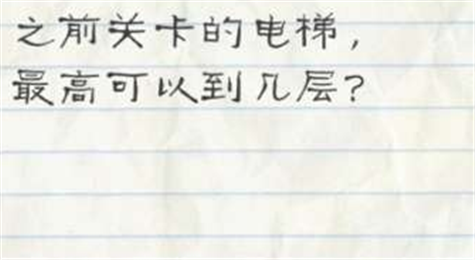 之前关卡的电梯，
最高可以到几层？